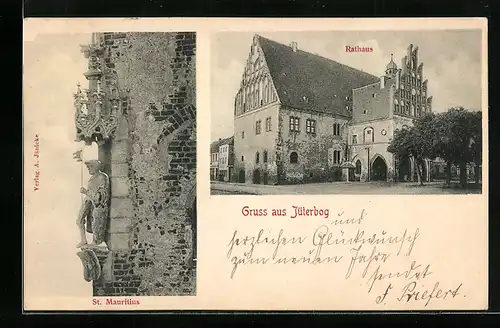 Rathaus
Verlag A. Jänicke
St. Mauritius
Gruss aus Jüterbog
und
herzlichen Glückwunsch
zum neuen Jahre
sendet
F. Priefert.